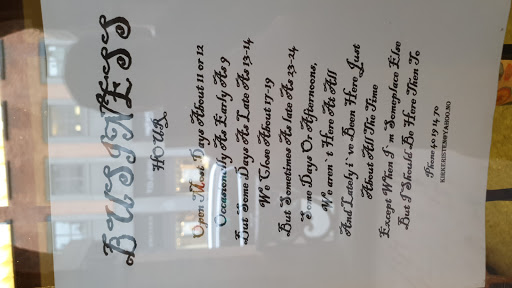 BUSINESS
HOUR
Open Most Days About 11 or 12
Occasionally As Early As 9
But Some Days As Late As 13-14
We Close About 17-19
But Sometimes As late As 23-24
Some Days Or Afternoons,
We aren't Here At All
And Lately i've Been Here Just
About All The Time
Except When I'm Someplace Else
But I Should Be Here Then To
Phone 40 19 4 70
KIKKERISTEN@YAHOO.NO